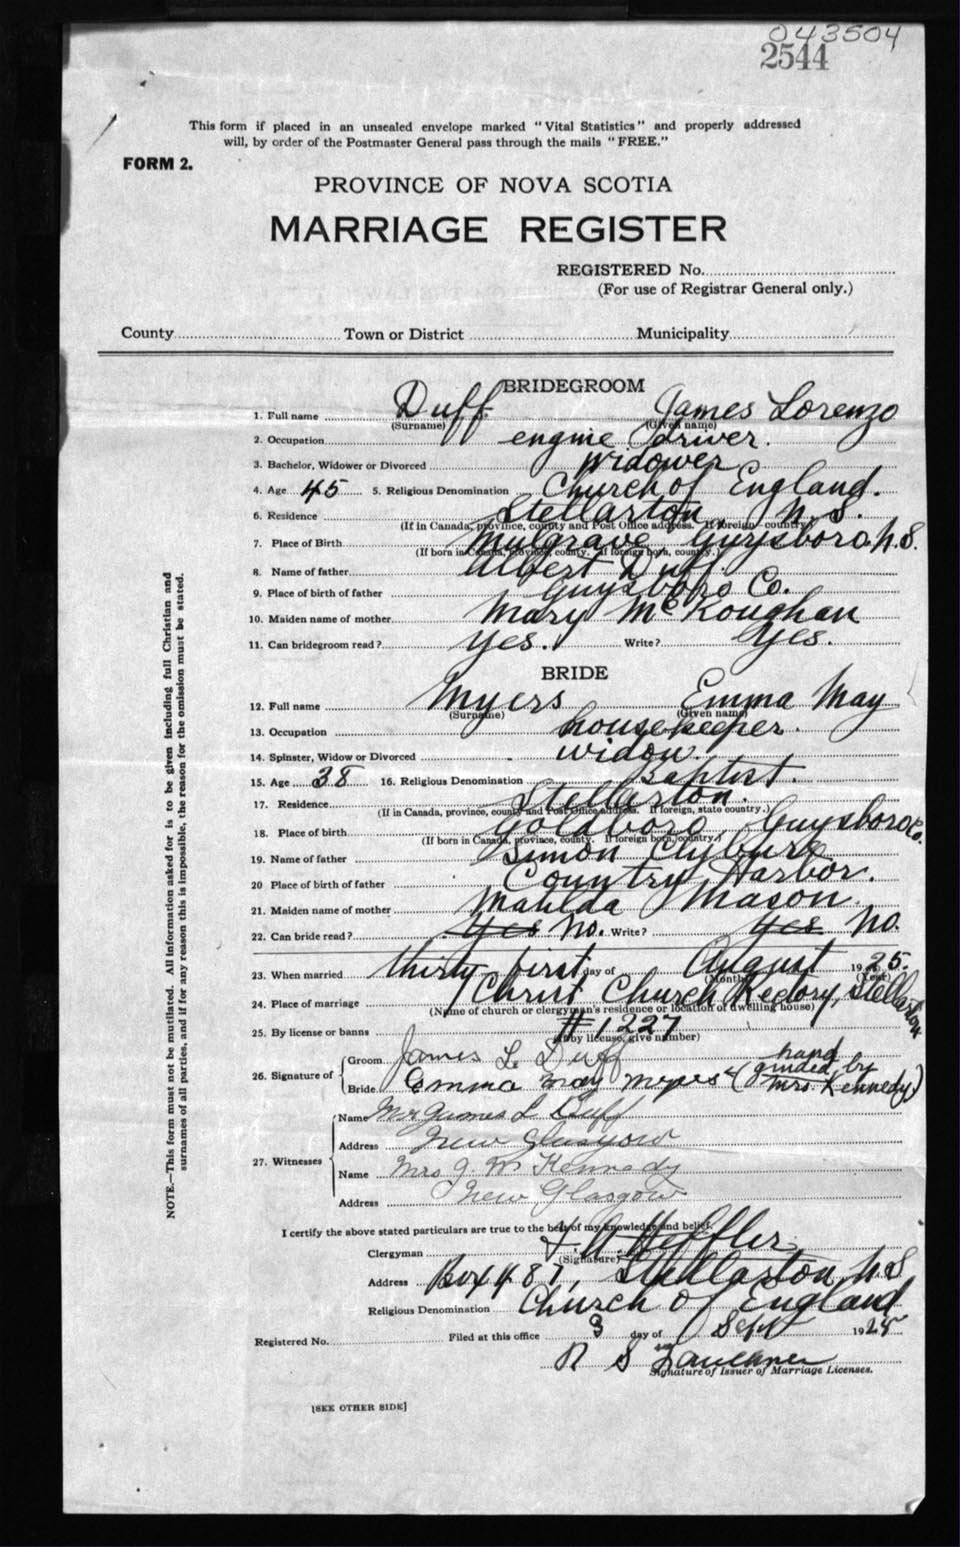 043504
2544
This form if placed in an unsealed envelope marked "Vital Statistics" and properly addressed
will, by order of the Postmaster General pass through the mails "FREE."
FORM 2.
PROVINCE OF NOVA SCOTIA
MARRIAGE REGISTER
REGISTERED No.
(For use of Registrar General only.)
County Town or District Municipality
BRIDEGROOM
1. Full name Duff James Lorenzo
(Surname) (Given name)
2. Occupation engine driver.
3. Bachelor, Widower or Divorced widower
4. Age 45 5. Religious Denomination Church of England.
6. Residence Stellarton N.S.
(If in Canada, province, county and Post Office address. If foreign country)
7. Place of Birth Mulgrave Guysboro N.S.
(If born in Canada, province, county. If foreign born, country.)
8. Name of father Albert Duff.
9. Place of birth of father Guysboro Co.
10. Maiden name of mother Mary McKoughan
11. Can bridegroom read? yes. Write? yes.
BRIDE
12. Full name Myers Emma May
(Surname) (Given name)
13. Occupation housekeeper.
14. Spinster, Widow or Divorced widow.
15. Age 38 16. Religious Denomination Baptist.
17. Residence Stellerton.
(If in Canada, province, county and Post Office address. If foreign, state country.)
18. Place of birth Goldboro, Guysboro Co.
(If born in Canada, province, county. If foreign born, country.)
19. Name of father Simon Clyburn
20 Place of birth of father Country Harbor.
21. Maiden name of mother Matilda Mason
22. Can bride read? yes No. Write? yes No.
23. When married thirty first day of August 1925.
(Month) (Year)
24. Place of marriage Christ Church Rectory, Stellarton
(Name of church or clergyman's residence or location of dwelling house)
25. By license or banns #1227
(If by license, give number)
26. Signature of
Groom James L. Duff
Bride Emma May Myers (hand guided by Mrs. Kennedy)
27. Witnesses
Name Mr James L Duff
Address New Glasgow
Name Mrs J. M Kennedy
Address New Glasgow
I certify the above stated particulars are true to the best of my knowledge and belief.
Clergyman Heffler
(Signature)
Address Box 487, Stellarton N.S
Religious Denomination Church of England
Registered No. Filed at this office 3 day of Sept 1925
R S Faulkner
Signature of Issuer of Marriage Licenses.
[SEE OTHER SIDE]
NOTE.—This form must not be mutilated. All information asked for is to be given including full Christian and
surnames of all parties, and if for any reason this is impossible, the reason for the omission must be stated.